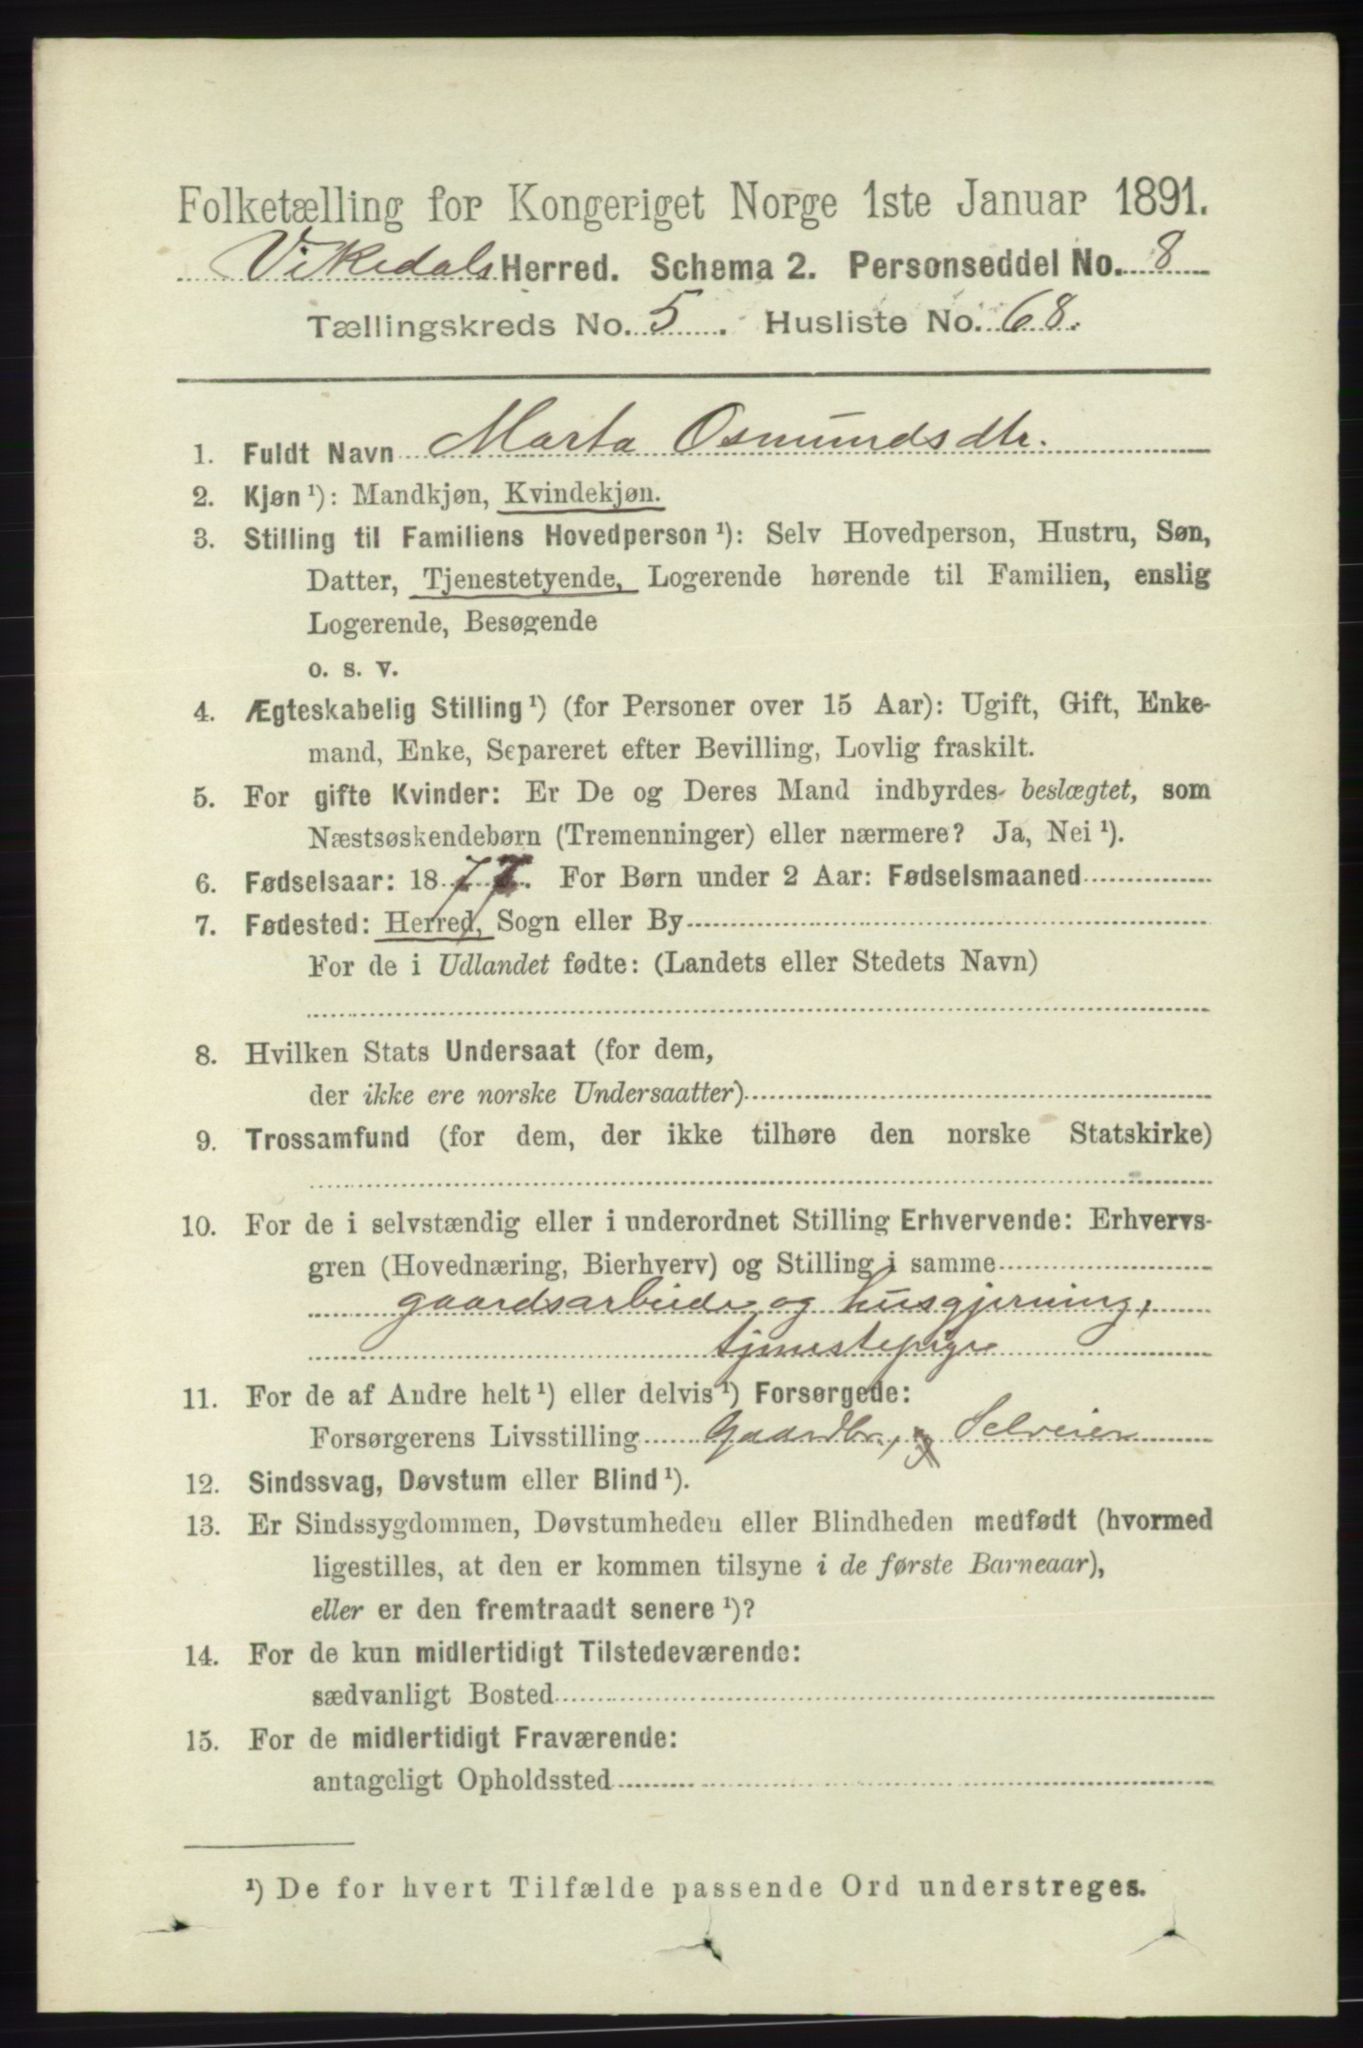 Folketælling for Kongeriget Norge 1ste Januar 1891.
Vikedals Herred. Schema 2. Personseddel No. 8
Tællingskreds No. 5. Husliste No. 68.
1. Fuldt Navn Marta Osmundsdtr.
2. Kjøn ¹): Mandkjøn, Kvindekjøn.
3. Stilling til Familiens Hovedperson ¹): Selv Hovedperson, Hustru, Søn,
Datter, Tjenestetyende, Logerende hørende til Familien, enslig
Logerende, Besøgende
o. s. v.
4. Ægteskabelig Stilling ¹) (for Personer over 15 Aar): Ugift, Gift, Enke-
mand, Enke, Separeret efter Bevilling, Lovlig fraskilt.
5. For gifte Kvinder: Er De og Deres Mand indbyrdes beslægtet, som
Næstsøskendebørn (Tremenninger) eller nærmere? Ja, Nei ¹).
6. Fødselsaar: 1877. For Børn under 2 Aar: Fødselsmaaned
7. Fødested: Herred, Sogn eller By
For de i Udlandet fødte: (Landets eller Stedets Navn)
8. Hvilken Stats Undersaat (for dem,
der ikke ere norske Undersaatter)
9. Trossamfund (for dem, der ikke tilhøre den norske Statskirke)
10. For de i selvstændig eller i underordnet Stilling Erhvervende: Erhvervs-
gren (Hovednæring, Bierhverv) og Stilling i samme
gaardsarbeide og husgjerning,
tjenestepige
11. For de af Andre helt ¹) eller delvis ¹) Forsørgede:
Forsørgerens Livsstilling Gaardbr., Selveier
12. Sindssvag, Døvstum eller Blind ¹).
13. Er Sindssygdommen, Døvstumheden eller Blindheden medfødt (hvormed
ligestilles, at den er kommen tilsyne i de første Barneaar),
eller er den fremtraadt senere ¹)?
14. For de kun midlertidigt Tilstedeværende:
sædvanligt Bosted
15. For de midlertidigt Fraværende:
antageligt Opholdssted
¹) De for hvert Tilfælde passende Ord understreges.